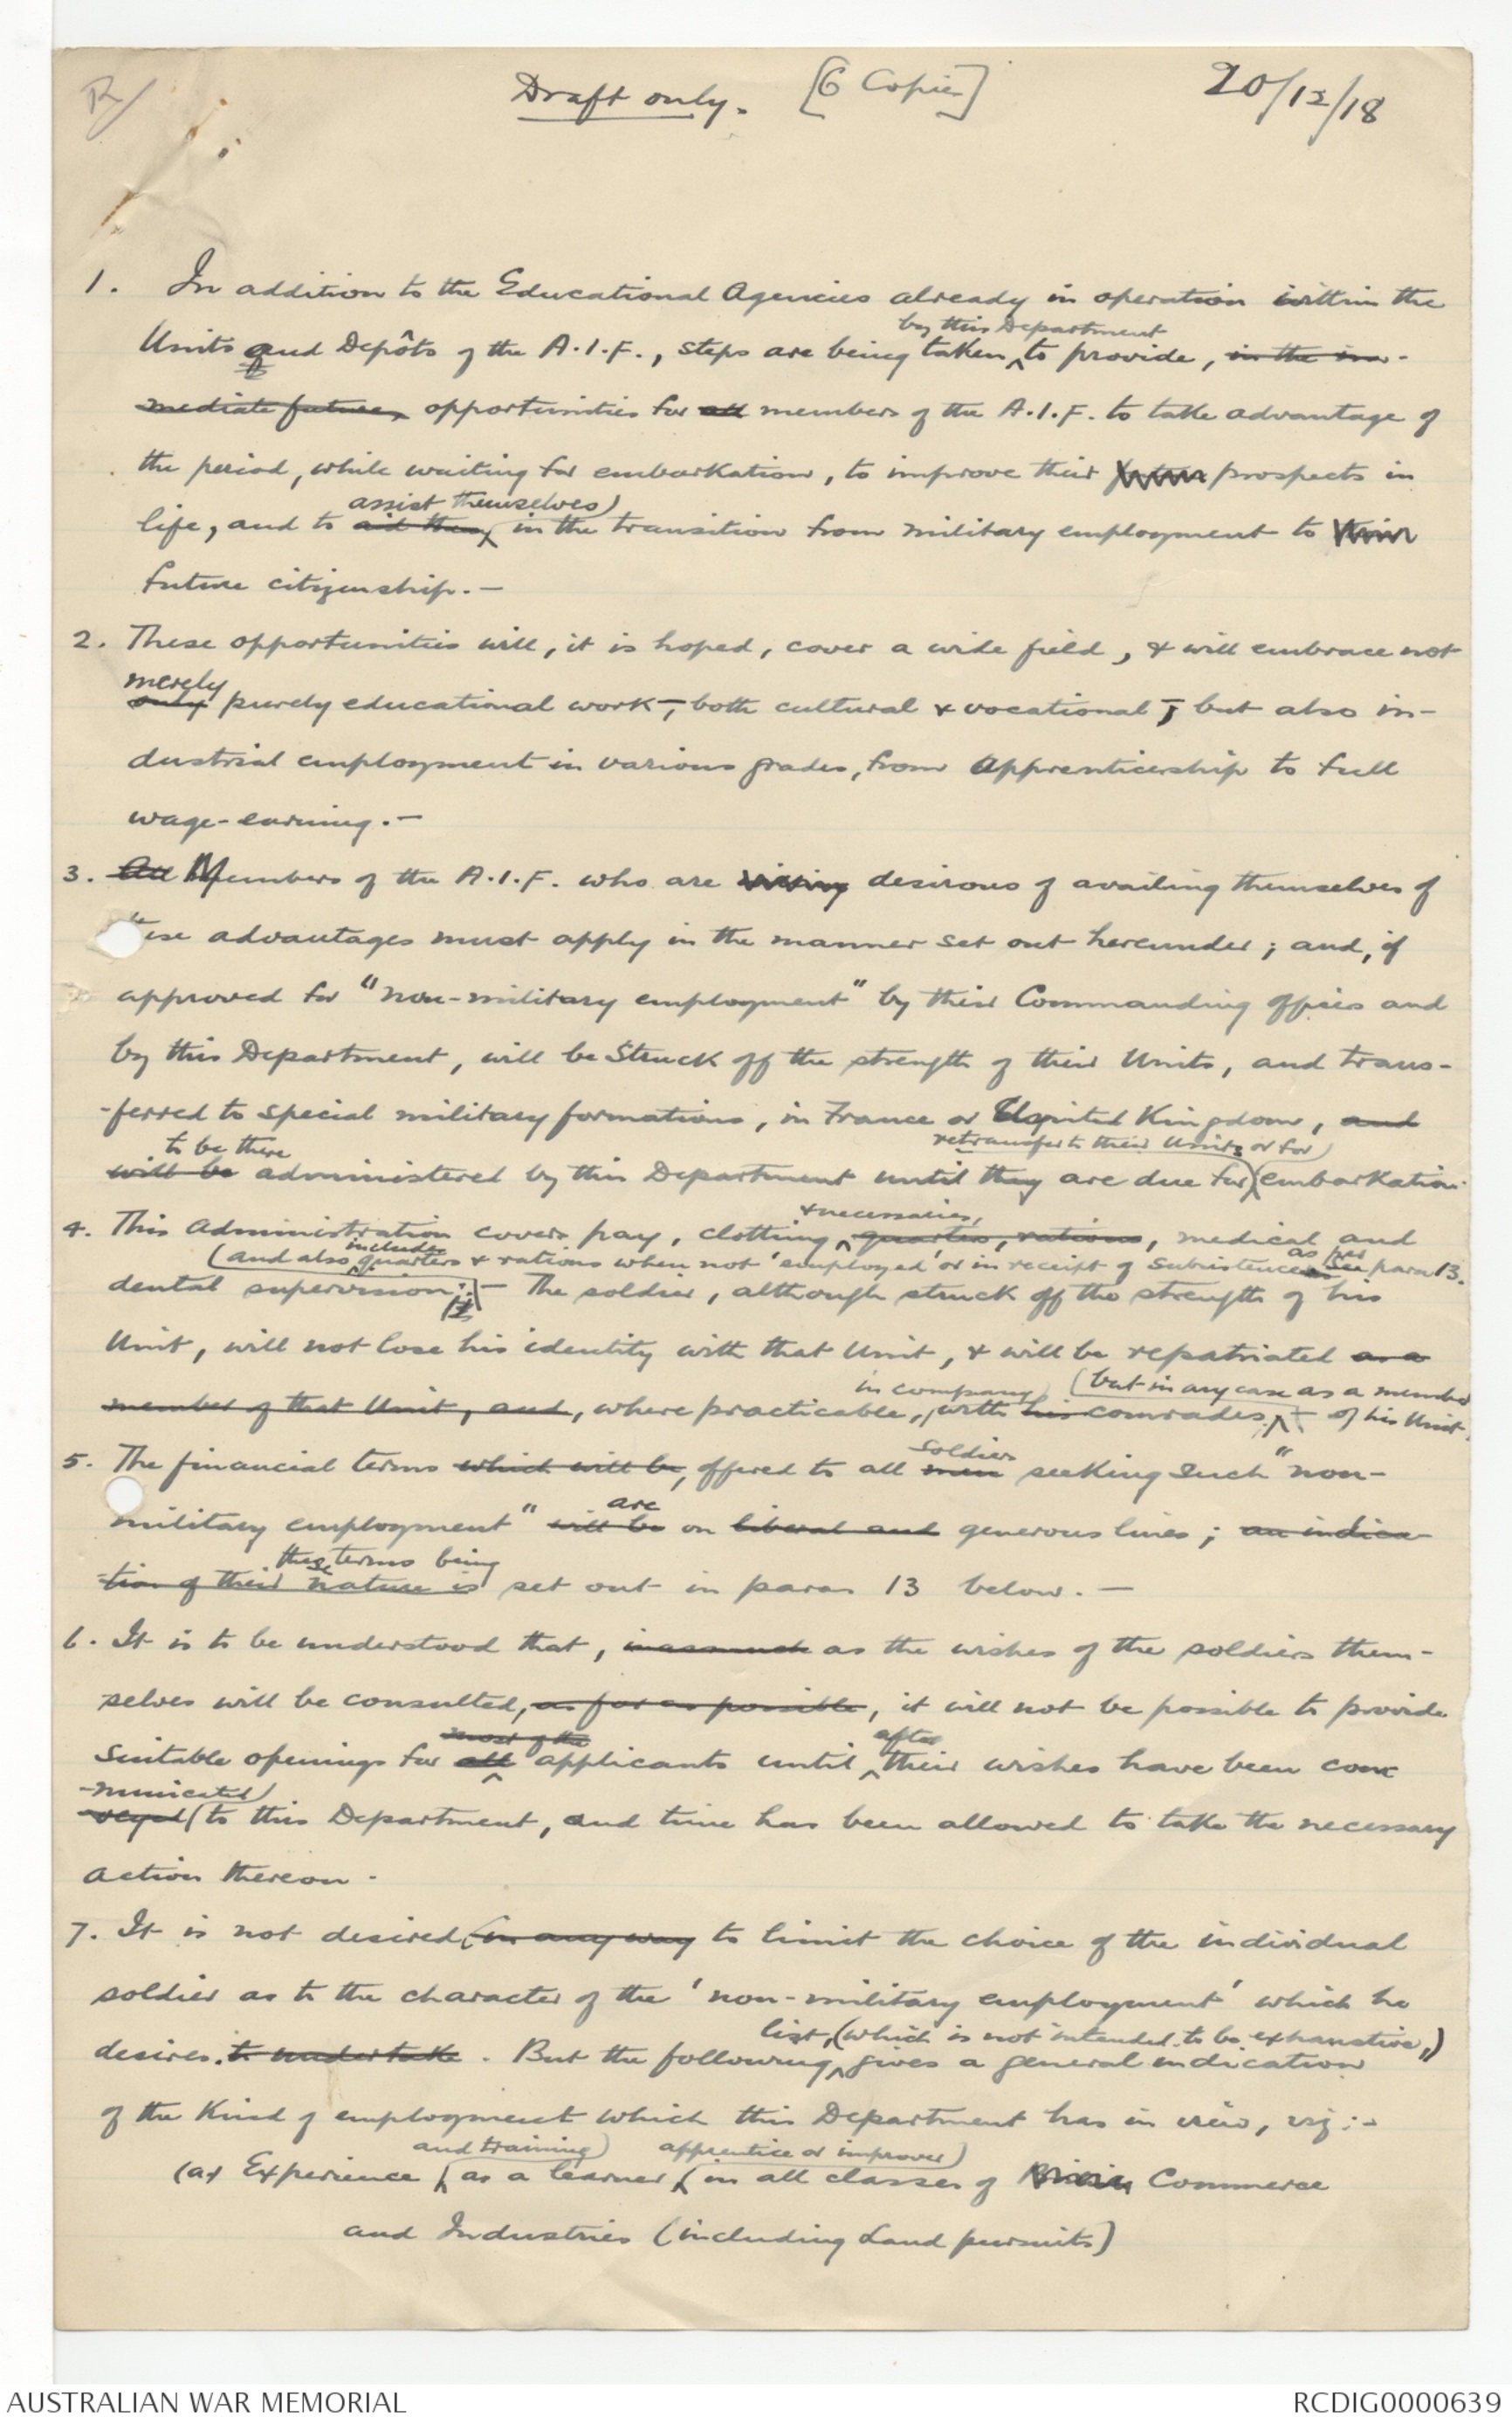 R/
Draft only. [6 Copies] 20/12/18
1. In addition to the Educational Agencies already in operation within the
by this Department
Units and Depôts of the A.I.F., steps are being taken to provide, in the im-
mediate future, opportunities for all members of the A.I.F. to take advantage of
the period, while waiting for embarkation, to improve their prospects in
assist themselves)
life, and to aid them in the transition from military employment to their
future citizenship. —
2. These opportunities will, it is hoped, cover a wide field, & will embrace not
merely
only purely educational work —, both cultural & vocational, but also in-
dustrial employment in various grades, from Apprenticeship to full
wage-earning. —
3. All Members of the A.I.F. who are desirous of availing themselves of
these advantages must apply in the manner set out hereunder; and, if
approved for "non-military employment" by their Commanding Officers and
by this Department, will be Struck off the strength of their Units, and trans-
-ferred to special military formations, in France or United Kingdom, and
to be there retransfer to their Units or for)
will be administered by this Department until they are due for embarkation.
& necessaries,
4. This Administration covers pay, clothing quarters, rations, medical and
(and also includes quarters & rations when not 'employed' or in receipt of Subsistence as per see para 13.
dental supervision. — The soldier, although struck off the strength of his
Unit, will not lose his identity with that Unit, & will be repatriated as a
in company) (but in any case as a member
member of that Unit, and, where practicable, with his comrades, of his Unit.
soldiers
5. The financial terms which will be, offered to all men seeking such "non-
are
military employment" will be on liberal and generous lines; an indica-
these terms being
-tion of their nature is set out in para 13 below. —
6. It is to be understood that, inasmuch as the wishes of the soldiers them-
selves will be consulted, as far as possible, it will not be possible to provide
most of the after
suitable openings for all applicants until their wishes have been com
-municated)
veyed to this Department, and time has been allowed to take the necessary
action thereon -
7. It is not desired, in any way to limit the choice of the individual
soldier as to the character of the 'non-military employment' which he
list, (which is not intended to be exhaustive,)
desires to undertake. But the following gives a general indication
of the Kind of employment which this Department has in view, viz:-
and training) apprentice or improver)
(a) Experience as a learner in all classes of Commerce
and Industries (including Land pursuits)
AUSTRALIAN WAR MEMORIAL RCDIG0000639